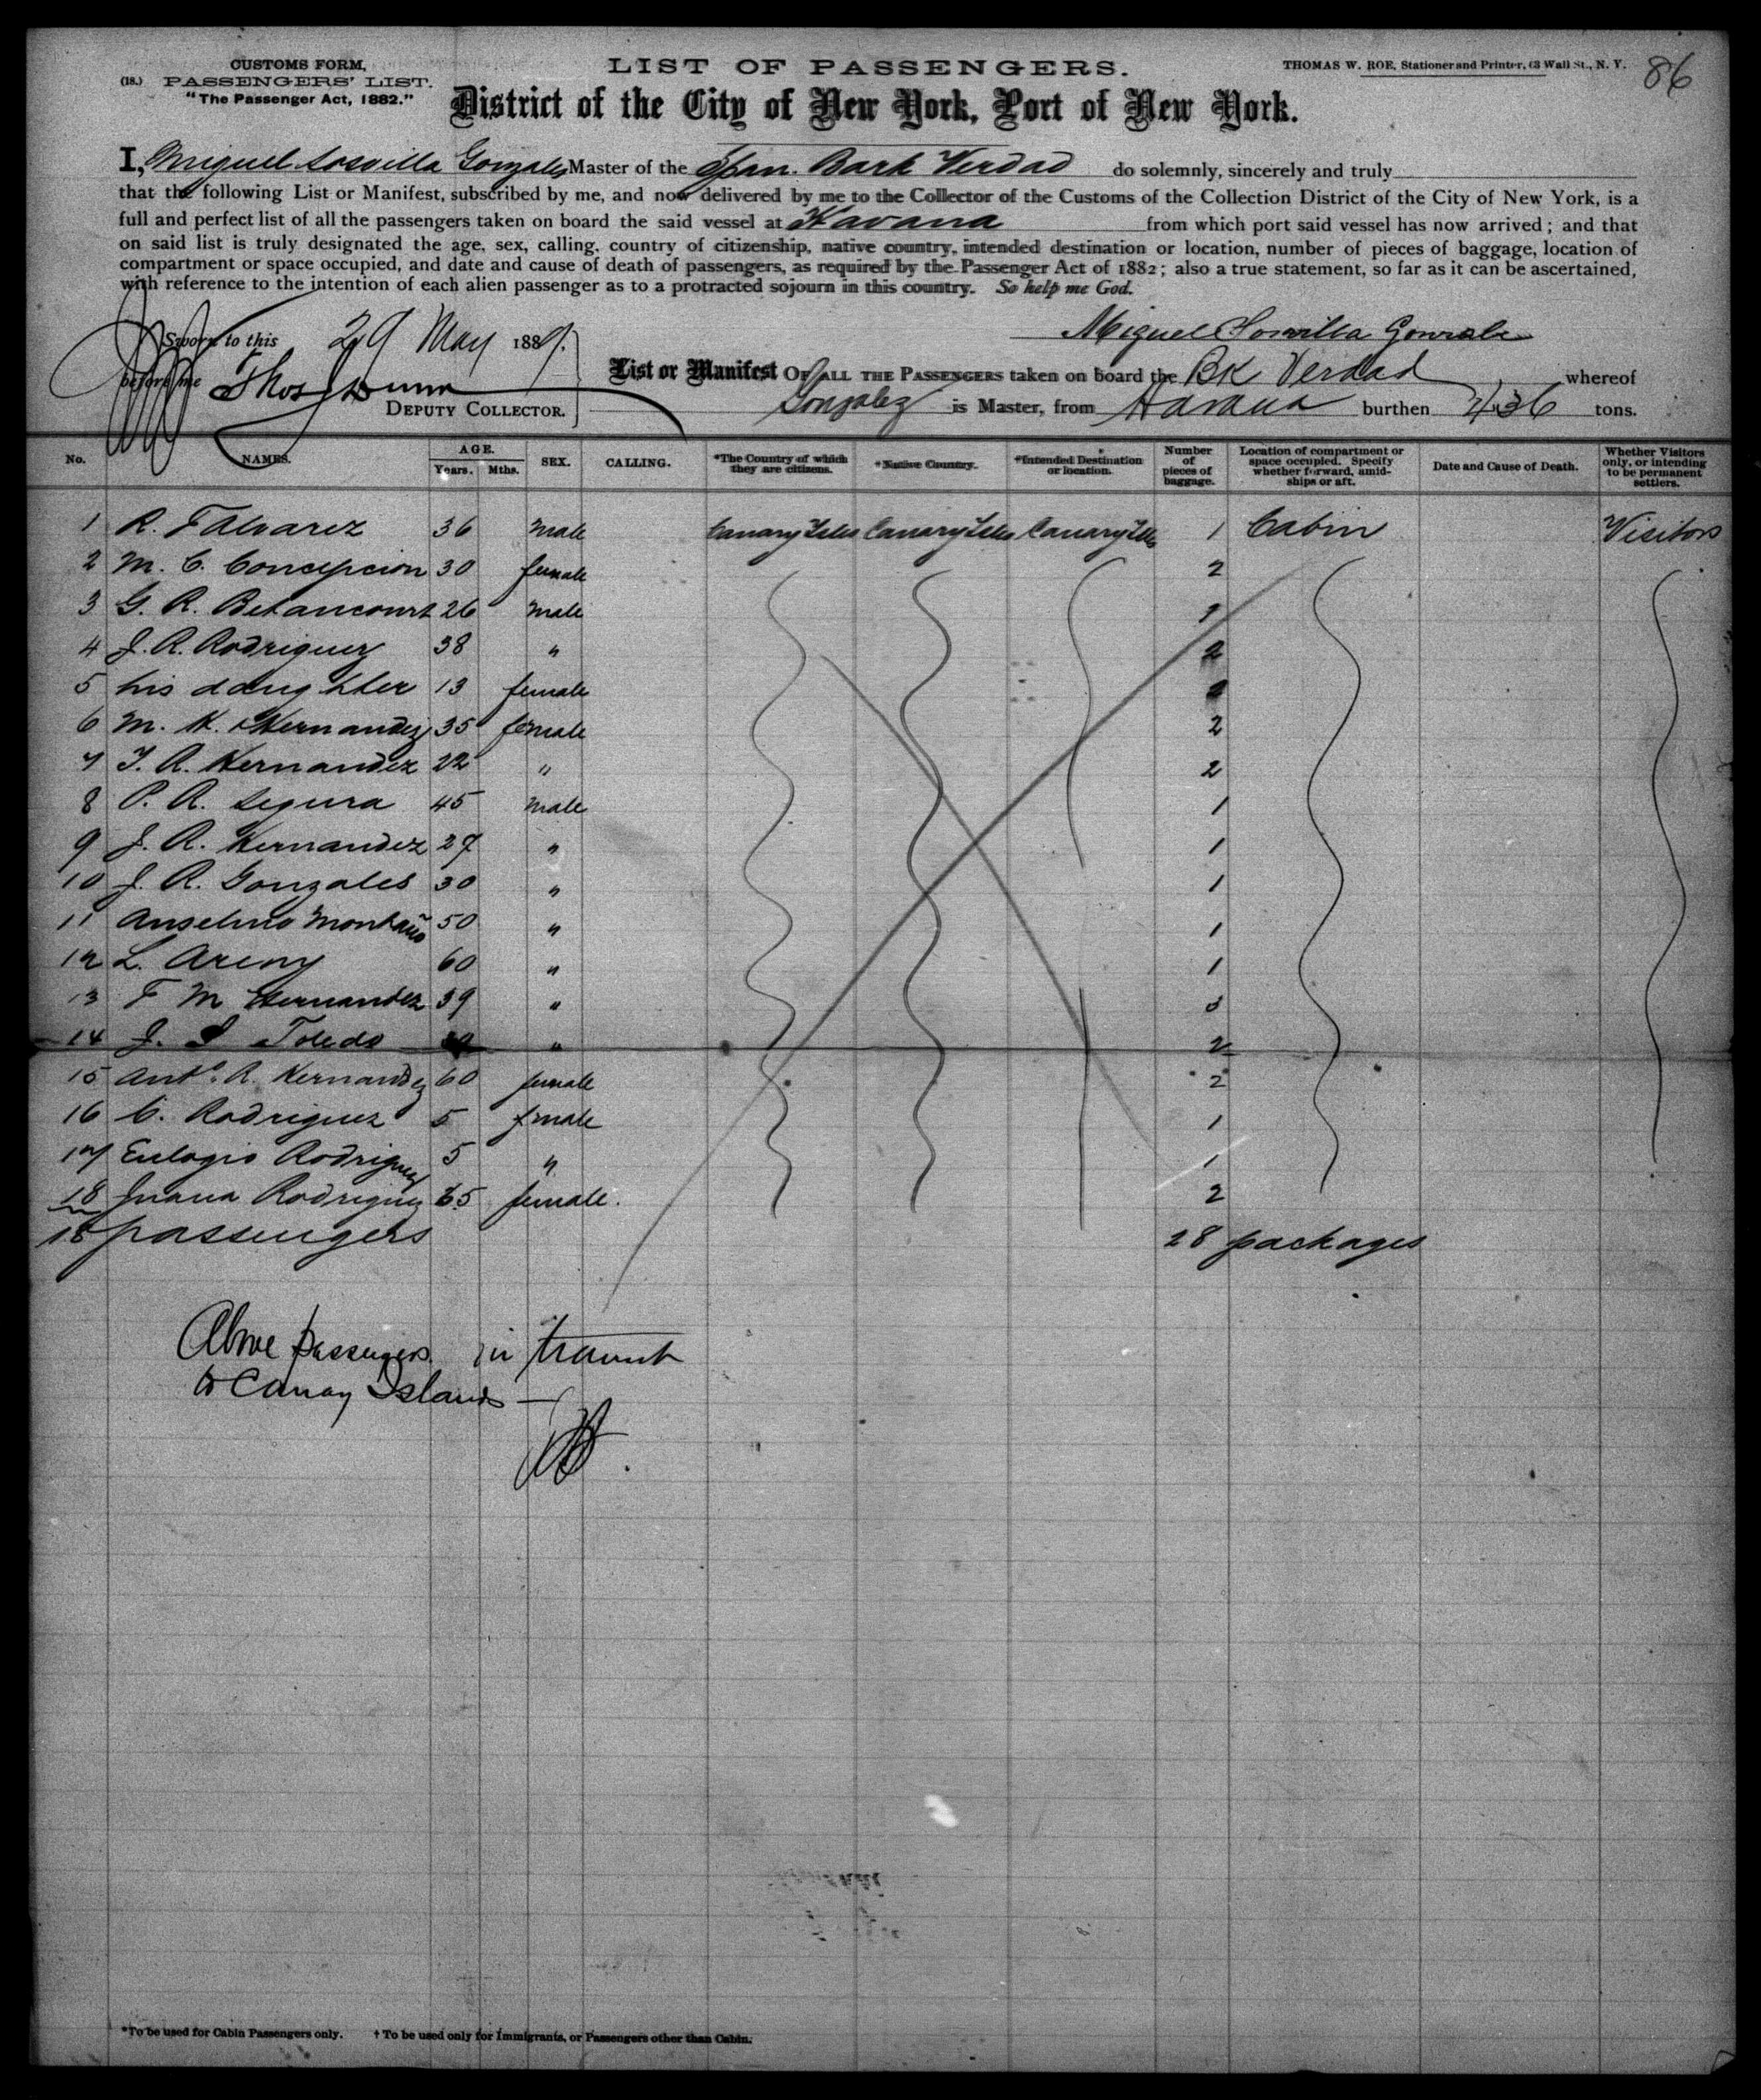 CUSTOMS FORM,
(18.) PASSENGERS' LIST.
"The Passenger Act, 1882."
LIST OF PASSENGERS.
THOMAS W. ROE, Stationer and Printer, 63 Wall St., N. Y.
86
District of the City of New York, Port of New York.
I, Miguel Sosvilla Gonzales Master of the Span. Bark Verdad do solemnly, sincerely and truly
that the following List or Manifest, subscribed by me, and now delivered by me to the Collector of the Customs of the Collection District of the City of New York, is a
full and perfect list of all the passengers taken on board the said vessel at Havana from which port said vessel has now arrived; and that
on said list is truly designated the age, sex, calling, country of citizenship, native country, intended destination or location, number of pieces of baggage, location of
compartment or space occupied, and date and cause of death of passengers, as required by the Passenger Act of 1882; also a true statement, so far as it can be ascertained,
with reference to the intention of each alien passenger as to a protracted sojourn in this country. So help me God.
Sworn to this 29 May 1889.
Miguel Sosvilla Gonzales
before me Thos J Dunn
DEPUTY COLLECTOR.
List or Manifest OF ALL THE PASSENGERS taken on board the Bk Verdad whereof
Gonzalez is Master, from Havana burthen 436 tons.
No. NAMES. AGE. Years. Mths. SEX. CALLING. *The Country of which they are citizens. *Native Country. *Intended Destination or location. Number of pieces of baggage. Location of compartment or space occupied. Specify whether forward, amidships or aft. Date and Cause of Death. Whether Visitors only, or intending to be permanent settlers.
1 R. F Alvarez 36 male Canary Isles Canary Isles Canary Isles 1 Cabin Visitors
2 M. C. Concepcion 30 female 2
3 G. R. Betancourt 26 male 1
4 J. R. Rodriguez 38 " 2
5 his daughter 13 female
6 M. H. Hernandez 35 female 2
7 T. R. Hernandez 22 " 2
8 P. R. Segura 45 male 1
9 J. R. Hernandez 27 " 1
10 J. R. Gonzales 30 " 1
11 Anselmo Montaño 50 " 1
12 L. Areny 60 " 1
13 F M Hernandez 39 " 3
14 J. S Toledo " 2
15 Anto. R. Hernandez 60 female 2
16 C. Rodriguez 5 fmale 1
17 Eulogio Rodriguez 5 " 1
18 Juana Rodriguez 65 female. 2
18 passengers 28 packages
Above passengers in transit
to Canary Islands —
*To be used for Cabin Passengers only. † To be used only for Immigrants, or Passengers other than Cabin.